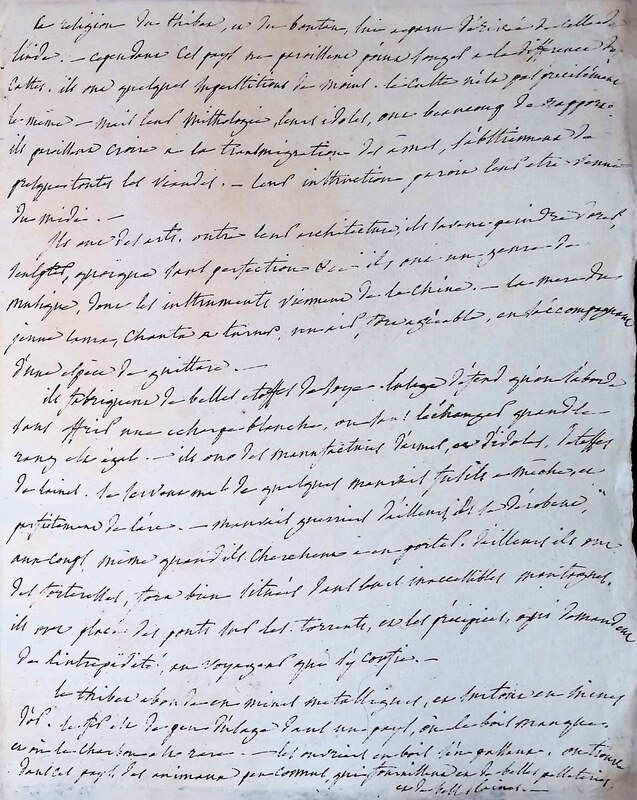 la religion du thibet, et du boutan, lui a paru dérivée de celle de
l'inde. — cependant ces pays ne paroissent point songer a la différence des
castes. ils ont quelques superstitions de moins. le culte n'est pas précisément
le même — mais leur mithologie, leurs idoles, ont beaucoup de rapport.
ils paroissent croire a la transmigration des âmes, s'abstiennent de
presque toutes les viandes. — leur instruction paroit leur etre venue
du midi. —
Ils ont des arts. outre leur architecture, ils savent peindre, dorer,
sculpter, quoique sans perfection &c — ils ont un genre de
musique, dont les instruments viennent de la Chine. — la mere du
jeune lama, chanta a turner, un air, fort agréable, en s'accompagnant
d'une espèce de guittare. —
ils fabriquent de belles etoffes de soye. l'usage défend qu'on s'aborde
sans offrir une echarpe blanche, on les échange quand le
rang est egal. — ils ont des manufactures d'armes, et d'idoles, d'etoffes
de laines. se servent mal de quelques mauvais fusils a mèche, et
parfaitement de l'arc. — mauvais guerriers d'ailleurs, ils se dérobent
aux coups même quand ils cherchent a en porter. d'ailleurs ils ont
des forteresses, fort bien situées dans leurs inaccessibles montagnes.
ils ont placé des ponts sur les torrents, et les précipices, qui demandent
de l'intrépidité, au voyageur qui s'y confie. —
le thibet abonde en mines metalliques, et surtout en mines
d'or. le fer est de peu d'usage dans un pays, où le bois manque
et où le charbon est rare. — les ouvriers en bois on trouve
dans ces pays, des animaux peu connus, qui fournissent de belles pelleteries
et de belles laines. —